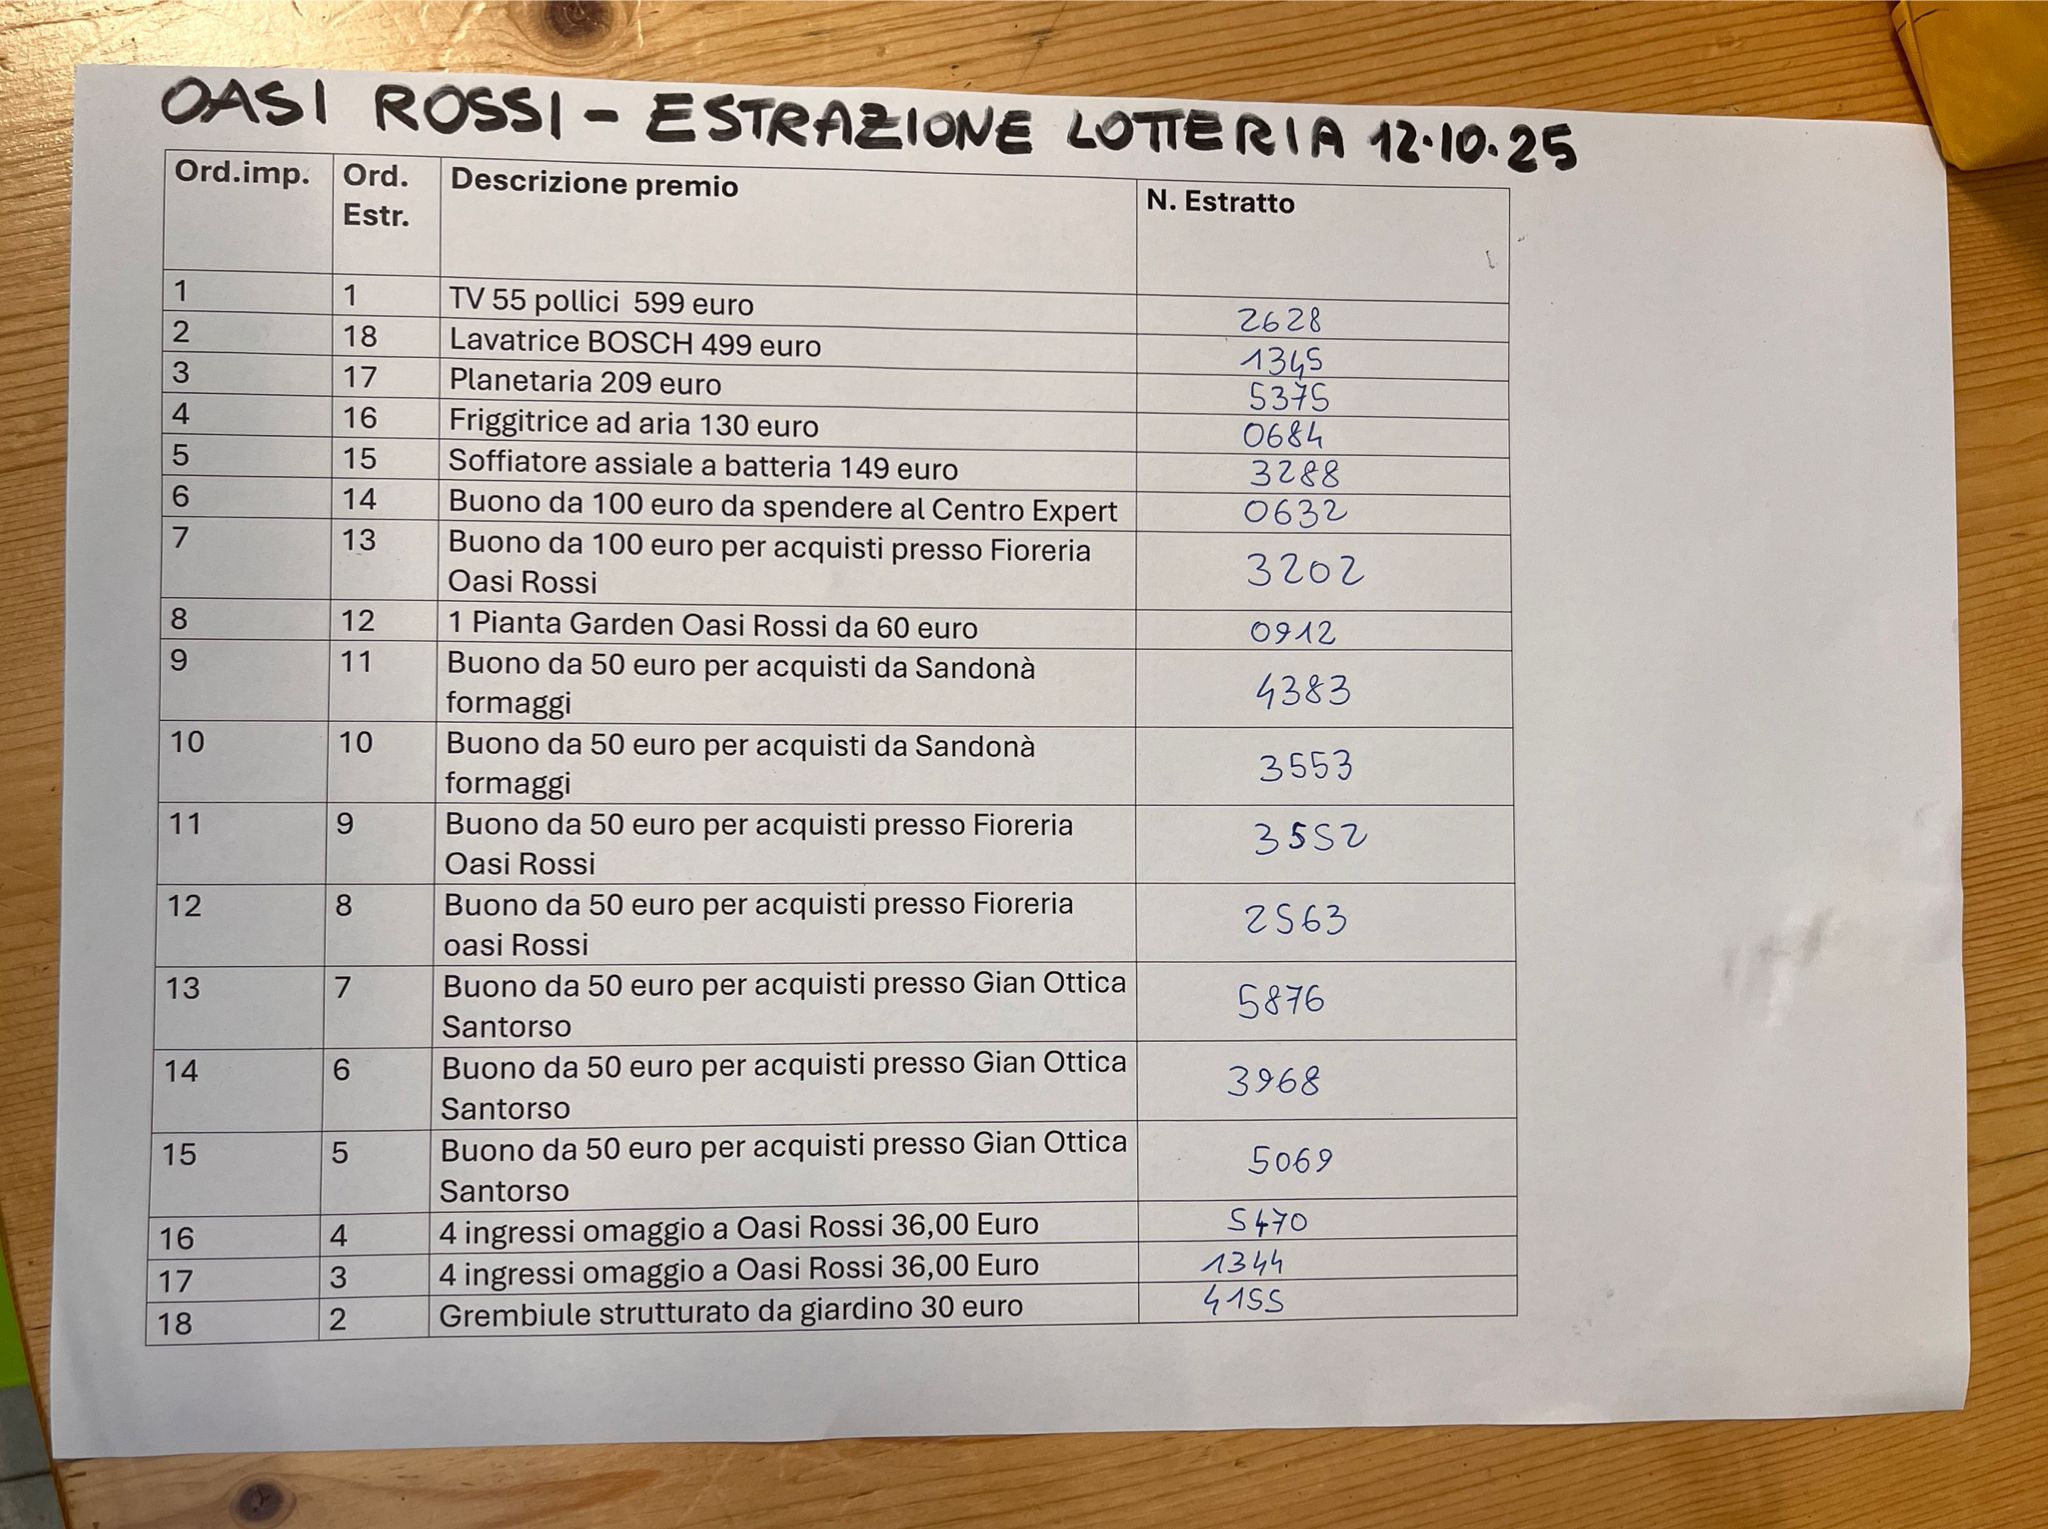 OASI ROSSI - ESTRAZIONE LOTTERIA 12.10.25
Ord.imp. Ord. Estr. Descrizione premio N. Estratto
1 1 TV 55 pollici 599 euro 2628
2 18 Lavatrice BOSCH 499 euro 1345
3 17 Planetaria 209 euro 5375
4 16 Friggitrice ad aria 130 euro 0684
5 15 Soffiatore assiale a batteria 149 euro 3288
6 14 Buono da 100 euro da spendere al Centro Expert 0632
7 13 Buono da 100 euro per acquisti presso Fioreria
Oasi Rossi 3202
8 12 1 Pianta Garden Oasi Rossi da 60 euro 0912
9 11 Buono da 50 euro per acquisti da Sandonà
formaggi 4383
10 10 Buono da 50 euro per acquisti da Sandonà
formaggi 3553
11 9 Buono da 50 euro per acquisti presso Fioreria
Oasi Rossi 3552
12 8 Buono da 50 euro per acquisti presso Fioreria
oasi Rossi 2563
13 7 Buono da 50 euro per acquisti presso Gian Ottica
Santorso 5876
14 6 Buono da 50 euro per acquisti presso Gian Ottica
Santorso 3968
15 5 Buono da 50 euro per acquisti presso Gian Ottica
Santorso 5069
16 4 4 ingressi omaggio a Oasi Rossi 36,00 Euro 5470
17 3 4 ingressi omaggio a Oasi Rossi 36,00 Euro 1344
18 2 Grembiule strutturato da giardino 30 euro 4155